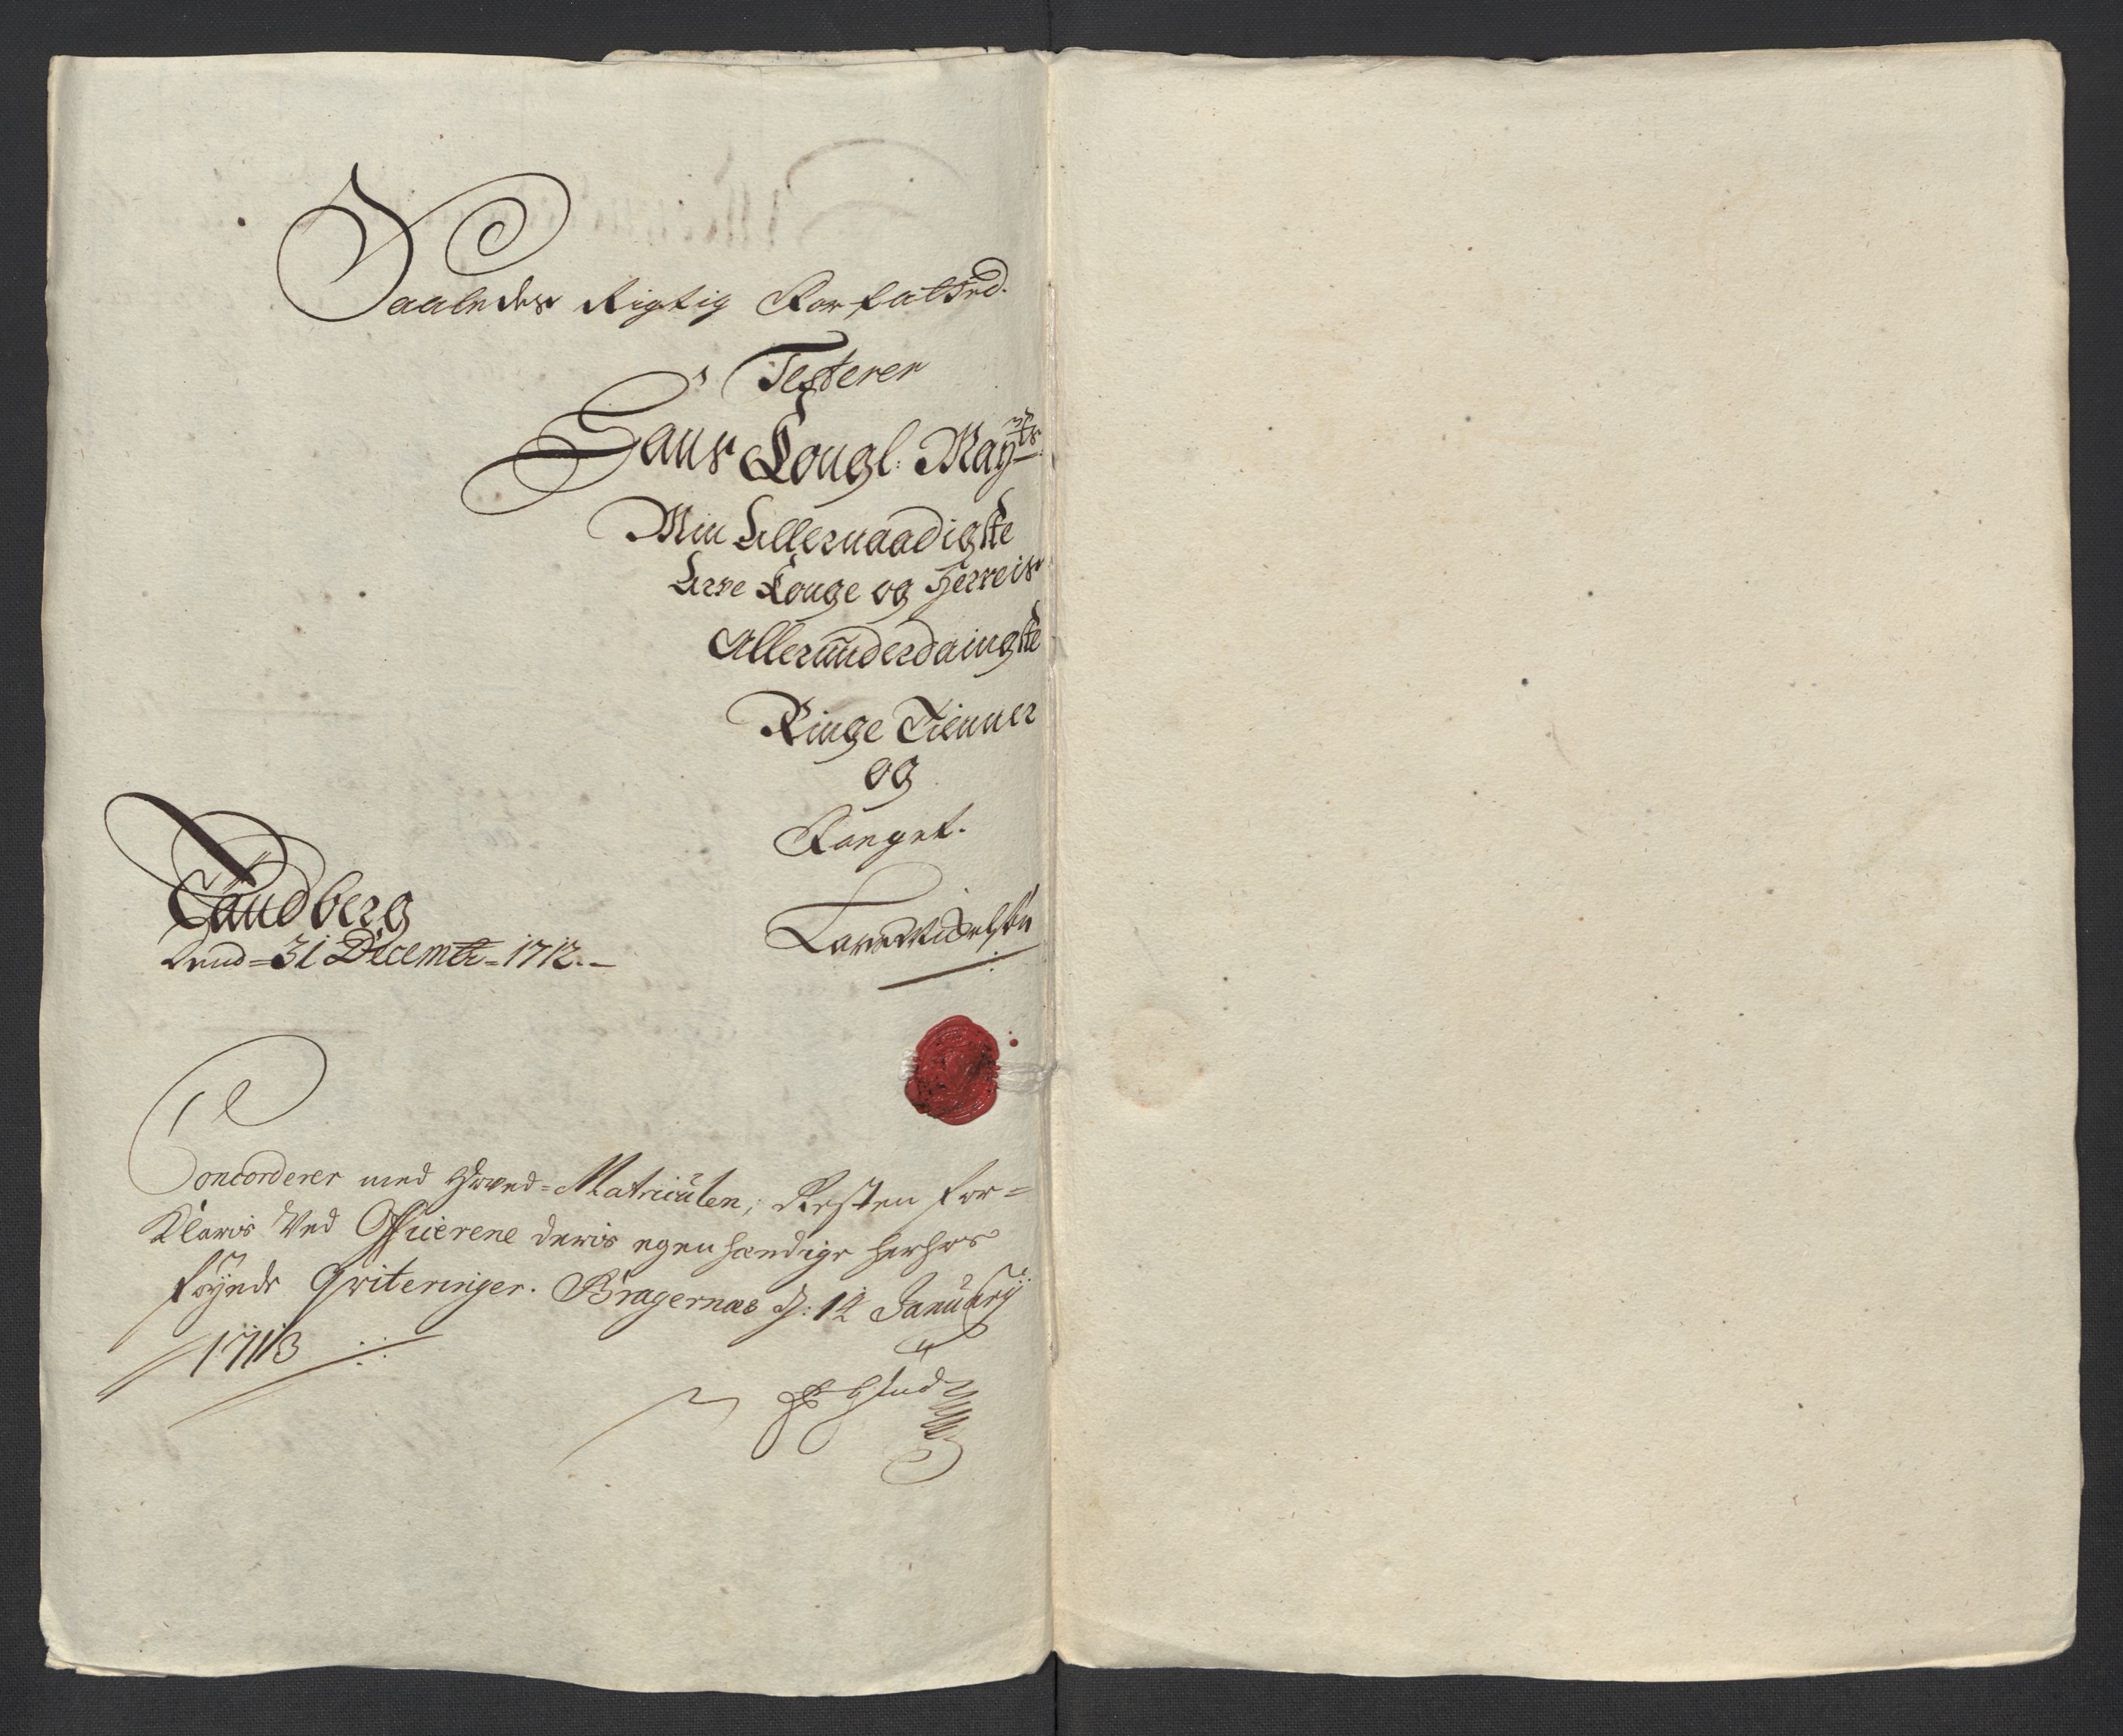 Saaledes Rigtig Forfatted.
Testerer
Hans Kongl: May:ts
Min Allernaadigste
Arve Konge og Herreis
Allerunderdaingste
Ringe Tienner
og
Foeget.
Sandberg
dend = 31 Decembr = 1712.
Concorderer med Hoved = Matriculen, Resten for =
Klaris Ved Officerene deris egenhændige herhos
føyede Qviteringer. Bragernæs d: 14 January
1713